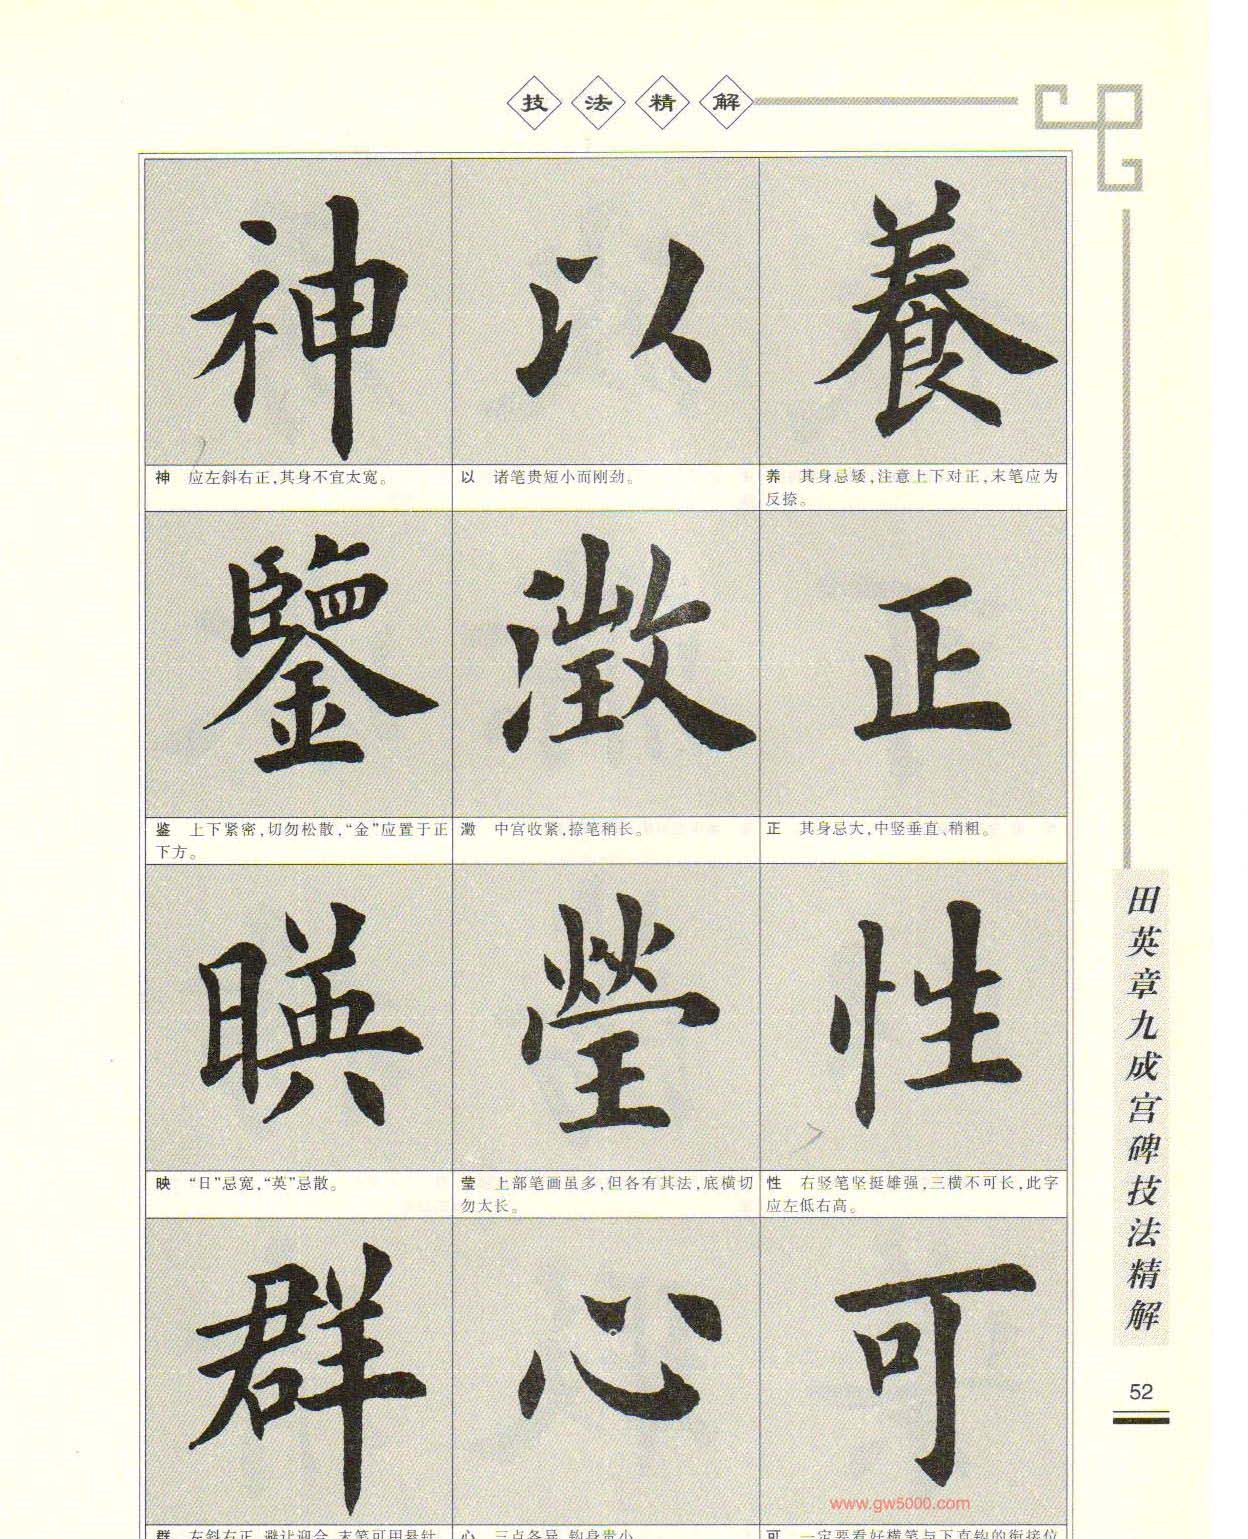 技法精解
神 以 養
神 应左斜右正,其身不宜太宽。
以 诸笔贵短小而刚劲。
养 其身忌矮,注意上下对正,末笔应为
反捺。
鑒 澂 正
鉴 上下紧密,切勿松散,“金”应置于正
下方。
澂 中宫收紧,捺笔稍长。
正 其身忌大,中竖垂直、稍粗。
暎 瑩 性
映 “日”忌宽,“英”忌散。
莹 上部笔画虽多,但各有其法,底横切
勿太长。
性 右竖笔坚挺雄强,三横不可长,此字
应左低右高。
群 心 可
群 左斜右正,避让迎合,末笔可用悬针
心 三点各异,钩身贵小
可 一定要看好横笔与下直钩的衔接位
www.gw5000.com
田英章九成宫碑技法精解
52